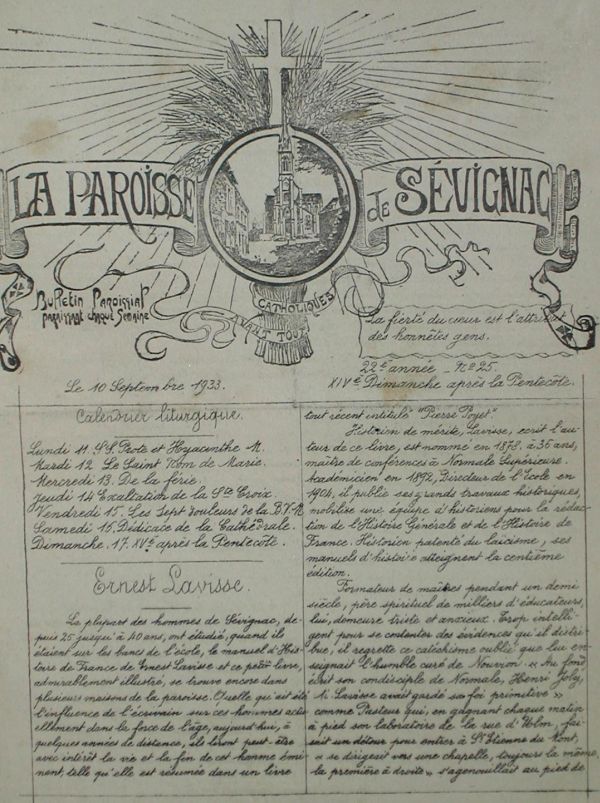 LA PAROISSE
de SÉVIGNAC
Bulletin Paroissial
paraissant chaque Semaine
CATHOLIQUES
AVANT TOUT
La fierté du cœur est l'attribut
des honnêtes gens.
22e année - No 25.
Le 10 Septembre 1933.
XIVe Dimanche après la Pentecôte.
Calendrier liturgique.
Lundi 11. S.S. Prote et Hyacinthe M.
Mardi 12. Le Saint Nom de Marie.
Mercredi 13. De la férie.
Jeudi 14 Exaltation de la Ste Croix.
Vendredi 15. Les Sept douleurs de la B.V.M.
Samedi 16. Dédicace de la Cathédrale.
Dimanche. 17. XVe après la Pentecôte.
Ernest Lavisse.
La plupart des hommes de Sévignac, de-
puis 25 jusqu'à 40 ans, ont étudié, quand ils
étaient sur les bancs de l'école, le manuel d'His-
toire de France de Ernest Lavisse et ce petit livre,
admirablement illustré, se trouve encore dans
plusieurs maisons de la paroisse. Quelle qu'ait été
l'influence de l'écrivain sur ces hommes actu-
ellement dans la force de l'âge, aujourd'hui, à
quelques années de distance, ils liront peut-être
avec intérêt la vie et la fin de cet homme émi-
nent, telle qu'elle est résumée dans un livre
tout récent intitulé "Pierre Poyet".
Historien de mérite, Lavisse, écrit l'au-
teur de ce livre, est nommé en 1878, à 36 ans,
maître de conférences à Normale Supérieure.
Académicien en 1892, Directeur de l'Ecole en
1904, il publie ses grands travaux historiques,
mobilise une équipe d'historiens pour la rédac-
tion de l'Histoire Générale et de l'Histoire de
France. Historien patenté du laïcisme, ses
manuels d'histoire atteignent la centième
édition.
Formateur de maîtres pendant un demi
siècle, père spirituel de milliers d'éducateurs,
lui, demeure triste et anxieux. Trop intelli-
gent pour se contenter des évidences qu'il distri-
bue, il regrette ce catéchisme oublié que lui en-
seignait l'humble curé de Nouvion. « Au fond
était son condisciple de Normale, Henri Joly,
si Lavisse avait gardé sa foi primitive »
comme Pasteur qui, en gagnant chaque matin
à pied son laboratoire de la rue d'Ulm, fai-
sait un détour pour entrer à St Etienne du Mont,
« se dirigeait vers une chapelle, toujours la même,
la première à droite », s'agenouillait au pied de